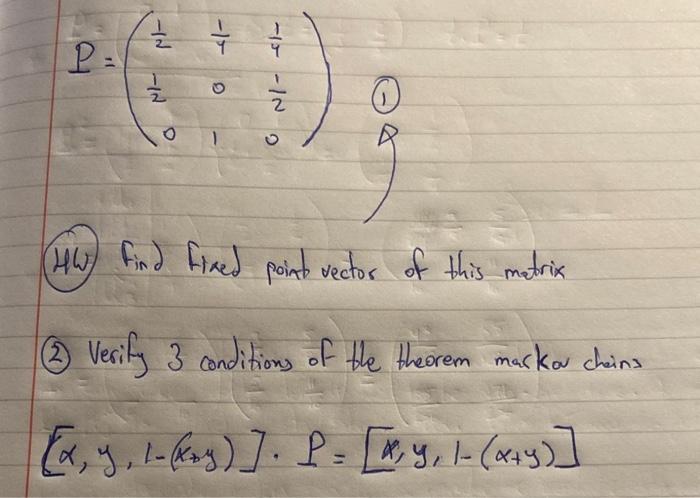 P = ( 1/2 1/4 1/4
1/2 0 1/2
0 1 0 ) ①
HW Find fixed point vector of this matrix
② Verify 3 conditions of the theorem markov chains
[x, y, 1-(x+y)] · P = [x, y, 1-(x+y)]